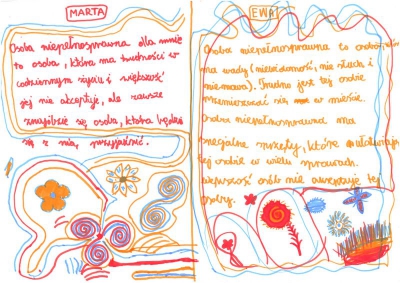 MARTA
Osoba niepełnosprawna dla mnie
to osoba, która ma trudności w
codziennym życiu i większość
jej nie akceptuje, ale zawsze
znajdzie się osoba, która będzie
się z nią przyjaźnić.
EWA
Osoba niepełnosprawna to osoba, która
ma wady (niewidomość, nie słucha i
niemowa). Trudno jest tej osobie
przemieszczać się w mieście.
Osoba niepełnosprawna ma
specjalne sprzęty, które ułatwiają
tej osobie w wielu sprawach.
Większość osób nie akceptuje tej
osoby.